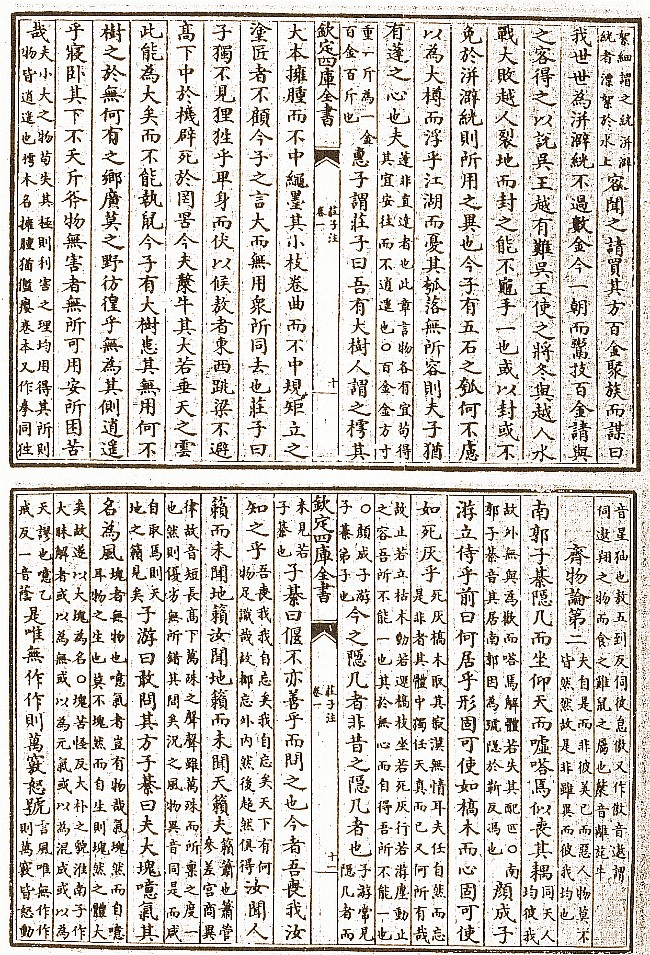 絮細謂之絖洴澼
絖者漂絮於水上
客聞之請買其方百金聚族而謀曰
我世世為洴澼絖不過數金今一朝而鬻技百金請與
之客得之以說吳王越有難吳王使之將冬與越人水
戰大敗越人裂地而封之能不龜手一也或以封或不
免於洴澼絖則所用之異也今子有五石之瓠何不慮
以為大樽而浮乎江湖而憂其瓠落無所容則夫子猶
有蓬之心也夫
蓬非直達者也此章言物各有宜苟得
其宜安往而不逍遙也○百金金方寸
重一斤為一金
百金百斤也
惠子謂莊子曰吾有大樹人謂之樗其
欽定四庫全書
莊子注
卷一
十一
大本擁腫而不中繩墨其小枝卷曲而不中規矩立之
塗匠者不顧今子之言大而無用衆所同去也莊子曰
子獨不見狸狌乎卑身而伏以候敖者東西跳梁不避
高下中於機辟死於罔罟今夫斄牛其大若垂天之雲
此能為大矣而不能執鼠今子有大樹患其無用何不
樹之於無何有之鄉廣莫之野彷徨乎無為其側逍遙
乎寢卧其下不夭斤斧物無害者無所可用安所困苦
哉
夫小大之物苟失其極則利害之理均用得其所則
物皆逍遙也樗木名擁腫猶癭卷本又作拳同狌
音星狌也敖五到反伺彼怠傲又作傲音遨謂
伺遨翔之物而食之雞鼠之屬也斄音離旄牛
齊物論第二
夫自是而非彼美己而惡人物莫不
皆然然故是非雖異而彼我均也
南郭子綦隱几而坐仰天而噓嗒焉似喪其耦
同天人
均彼我
故外無與為歡而嗒焉解體若失其配匹○南
郭子綦音其居南郭因為號隱於靳反馮也
顔成子
游立侍乎前曰何居乎形固可使如槁木而心固可使
如死灰乎
死灰槁木取其寂漠無情耳夫任自然而忘
是非者其體中獨任天真而已又何所有哉
故止若立枯木動若運槁枝坐若死灰行若游塵動止
之容吾所不能一也其於無心而自得吾所不能一也
○顔成子游
子綦弟子也
今之隱几者非昔之隱几者也
子游常見
隱几者而
欽定四庫全書
莊子注
卷一
十二
未見若
子綦也
子綦曰偃不亦善乎而問之也今者吾喪我汝
知之乎
吾喪我我自忘矣我自忘矣天下有何
物足識哉故都忘外内然後超然俱得
汝聞人
籟而未聞地籟汝聞地籟而未聞天籟夫
籟簫也簫管
參差宮商異
律故音短長高下萬殊之聲聲雖萬殊而所稟之度一
也然則優劣無所錯其間矣況之風物異音同是而咸
自取焉則天
地之籟見矣
子游曰敢問其方子綦曰夫大塊噫氣其
名為風
塊者無物也噫氣者豈有物哉氣塊然而自噫
耳物之生也莫不塊然而自生則塊然之體大
矣故遂以大塊為名○塊苦怪反大朴之貌淮南子作
大昧解者或以為無或以為元氣或以為混成或以為
天謬也噫乙
戒反一音蔭
是唯無作作則萬竅怒號
言風唯無作作
則萬竅皆怒動